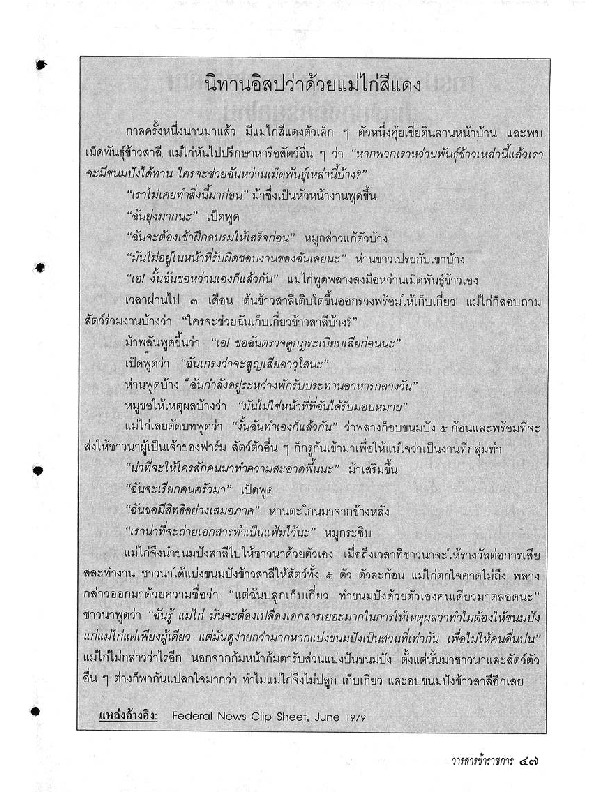 นิทานอิสปว่าด้วยแม่ไก่สีแดง
กาลครั้งหนึ่งนานมาแล้ว มีแม่ไก่สีแดงตัวเล็ก ๆ ตัวหนึ่งคุ้ยเขี่ยดินลานหน้าบ้าน และพบ
เม็ดพันธุ์ข้าวสาลี แม่ไก่หันไปปรึกษาหารือสัตว์อื่น ๆ ว่า "หากพวกเราหว่านพันธุ์ข้าวเหล่านี้แล้วเรา
จะมีขนมปังได้ทาน ใครจะช่วยฉันหว่านเม็ดพันธุ์เหล่านี้บ้าง?"
"เราไม่เคยทำสิ่งนี้มาก่อน" ม้าซึ่งเป็นหัวหน้างานพูดขึ้น
"ฉันยุ่งมากนะ" เป็ดพูด
"ฉันจะต้องเข้าฝึกอบรมให้เสร็จก่อน" หมูกล่าวแก้ตัวบ้าง
"มันไม่อยู่ในหน้าที่รับผิดชอบงานของฉันเลยนะ" ห่านขาวเปรยกับเขาบ้าง
"เอ! งั้นฉันขอหว่านเองก็แล้วกัน" แม่ไก่พูดพลางลงมือหว่านเม็ดพันธุ์ข้าวเอง
เวลาผ่านไป ๓ เดือน ต้นข้าวสาลีเติบโตขึ้นออกรวงพร้อมให้เก็บเกี่ยว แม่ไก่ก็สอบถาม
สัตว์ร่วมงานบ้างว่า "ใครจะช่วยฉันเก็บเกี่ยวข้าวสาลีบ้าง?"
ม้าพลันพูดขึ้นว่า "เอ! ขอฉันตรวจดูกฎระเบียบเสียก่อนนะ"
เป็ดพูดว่า "ฉันเกรงว่าจะสูญเสียอาวุโสนะ"
ห่านพูดบ้าง "ฉันกำลังอยู่ระหว่างพักรับประทานอาหารกลางวัน"
หมูขอให้เหตุผลบ้างว่า "มันไม่ใช่หน้าที่ที่ฉันได้รับมอบหมาย"
แม่ไก่เลยตัดบทพูดว่า "งั้นฉันทำเองก็แล้วกัน" ว่าพลางก็อบขนมปัง ๕ ก้อนและพร้อมที่จะ
ส่งให้ชาวนาผู้เป็นเจ้าของฟาร์ม สัตว์ตัวอื่น ๆ ก็กรูกันเข้ามาเพื่อให้แน่ใจว่าเป็นงานที่
"น่าที่จะให้ใครสักคนมาทำความสะอาดพื้นนะ" ม้าเสริมขึ้น
"ฉันจะเรียกคนครัวมา" เป็ดพูด
"ฉันขอมีสิทธิอย่างเสมอภาค" ห่านตะโกนมาจากข้างหลัง
"เราน่าที่จะถ่ายเอกสารทำเป็นแฟ้มไว้นะ" หมูกระซิบ
แม่ไก่จึงนำขนมปังสาลีไปให้ชาวนาด้วยตัวเอง เมื่อถึงเวลาที่ชาวนาจะให้รางวัลต่อการเสีย
สละทำงาน ชาวนาได้แบ่งขนมปังข้าวสาลีให้สัตว์ทั้ง ๕ ตัว ตัวละก้อน แม่ไก่ตกใจคาดไม่ถึง พลาง
กล่าวออกมาด้วยความซื่อว่า "แต่ฉันปลูกเก็บเกี่ยว ทำขนมปังด้วยตัวเองคนเดียวมาตลอดนะ"
ชาวนาพูดว่า "ฉันรู้ แม่ไก่ มันจะต้องเปลืองเอกสารเยอะมากในการให้เหตุผลว่าทำไมต้องให้ขนมปัง
แก่แม่ไก่แต่เพียงผู้เดียว แต่มันดูง่ายกว่ามากหากแบ่งขนมปังเป็นส่วนที่เท่ากัน เพื่อไม่ให้คนอื่นบ่น"
แม่ไก่ไม่กล่าวว่าไรอีก นอกจากก้มหน้าก้มตารับส่วนแบ่งปันขนมปัง ตั้งแต่นั้นมาชาวนาและสัตว์ตัว
อื่น ๆ ต่างก็พากันแปลกใจมากว่า ทำไมแม่ไก่จึงไม่ปลูก เก็บเกี่ยว และอบขนมปังข้าวสาลีอีกเลย
แหล่งอ้างอิง: Federal News Clip Sheet, June 1979
วารสารข้าราชการ ๔๗